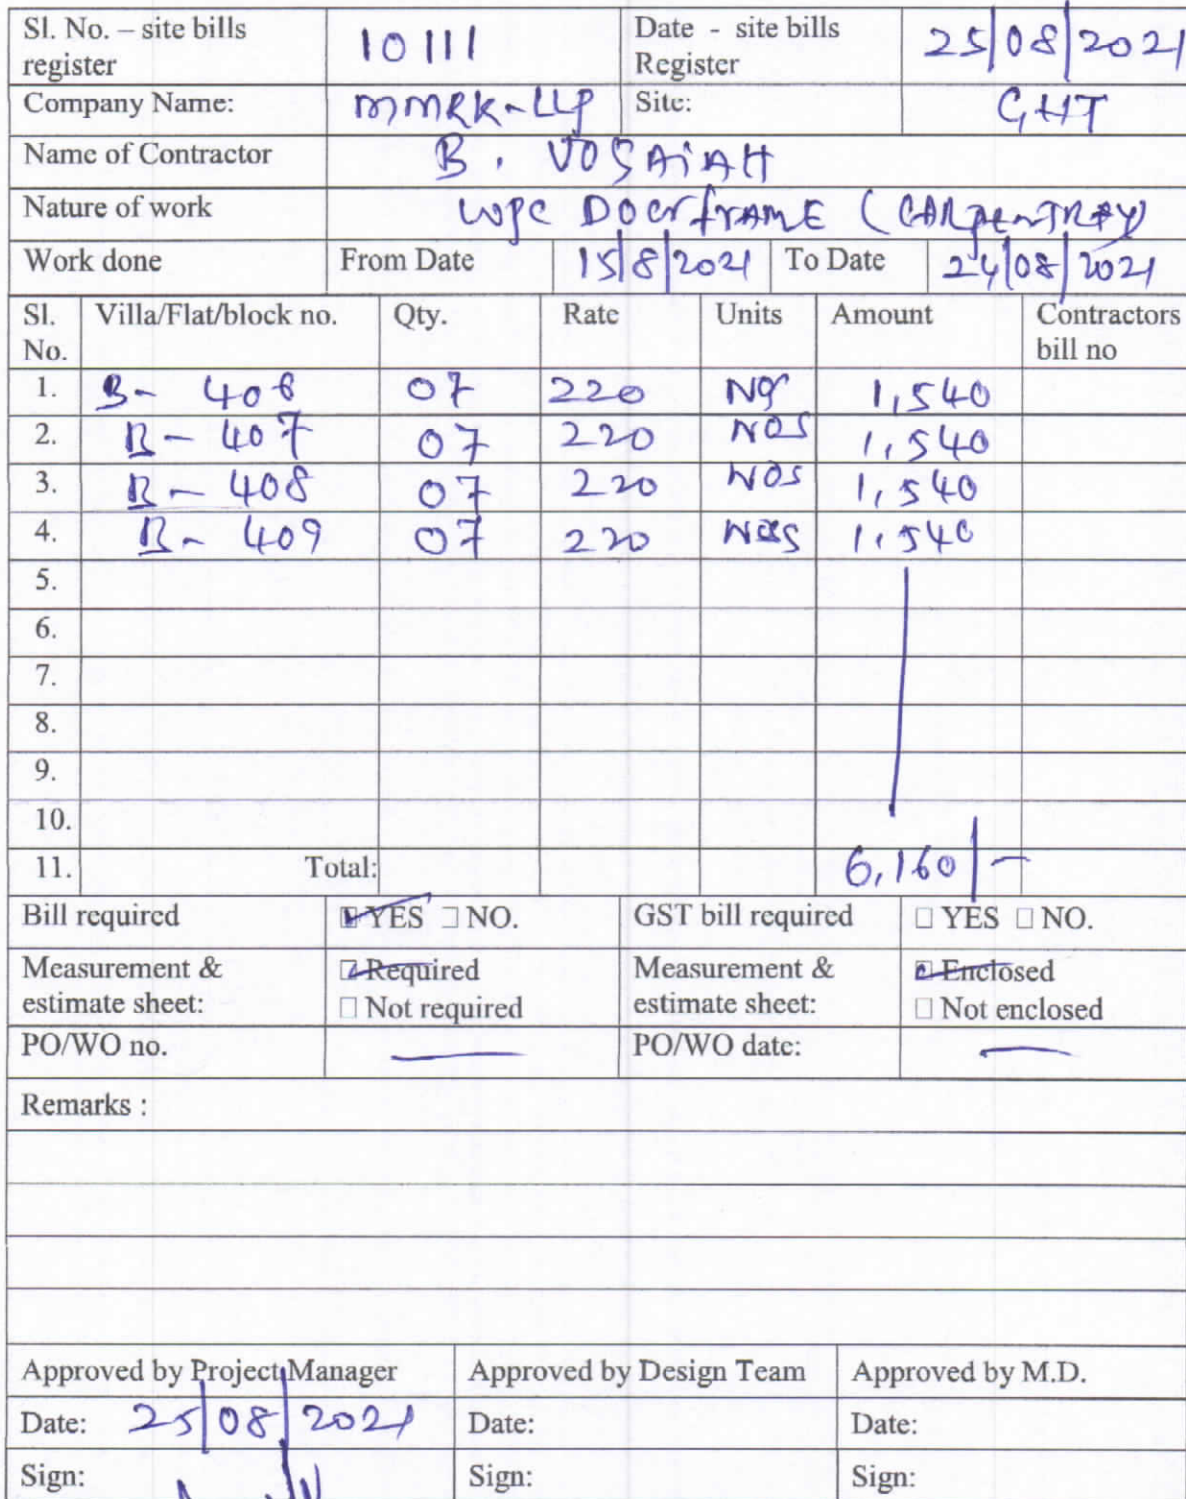 Sl. No. – site bills register 10111 Date - site bills Register 25/08/2021
Company Name: MMRK-LLP Site: GHT
Name of Contractor B. VOSAiAH
Nature of work WPC DOorfRAME (CARPENTRAY)
Work done From Date 15/8/2021 To Date 24/08/2021
Sl. No. Villa/Flat/block no. Qty. Rate Units Amount Contractors bill no
1. B- 406 07 220 Nos 1,540
2. B- 407 07 220 NOS 1,540
3. B- 408 07 220 NOS 1,540
4. B- 409 07 220 NOS 1,540
5.
6.
7.
8.
9.
10.
11. Total: 6,160/-
Bill required YES NO. GST bill required YES NO.
Measurement & estimate sheet: Required Not required Measurement & estimate sheet: Enclosed Not enclosed
PO/WO no. — PO/WO date: —
Remarks :
Approved by Project Manager Approved by Design Team Approved by M.D.
Date: 25/08/2021 Date: Date:
Sign: Sign: Sign: